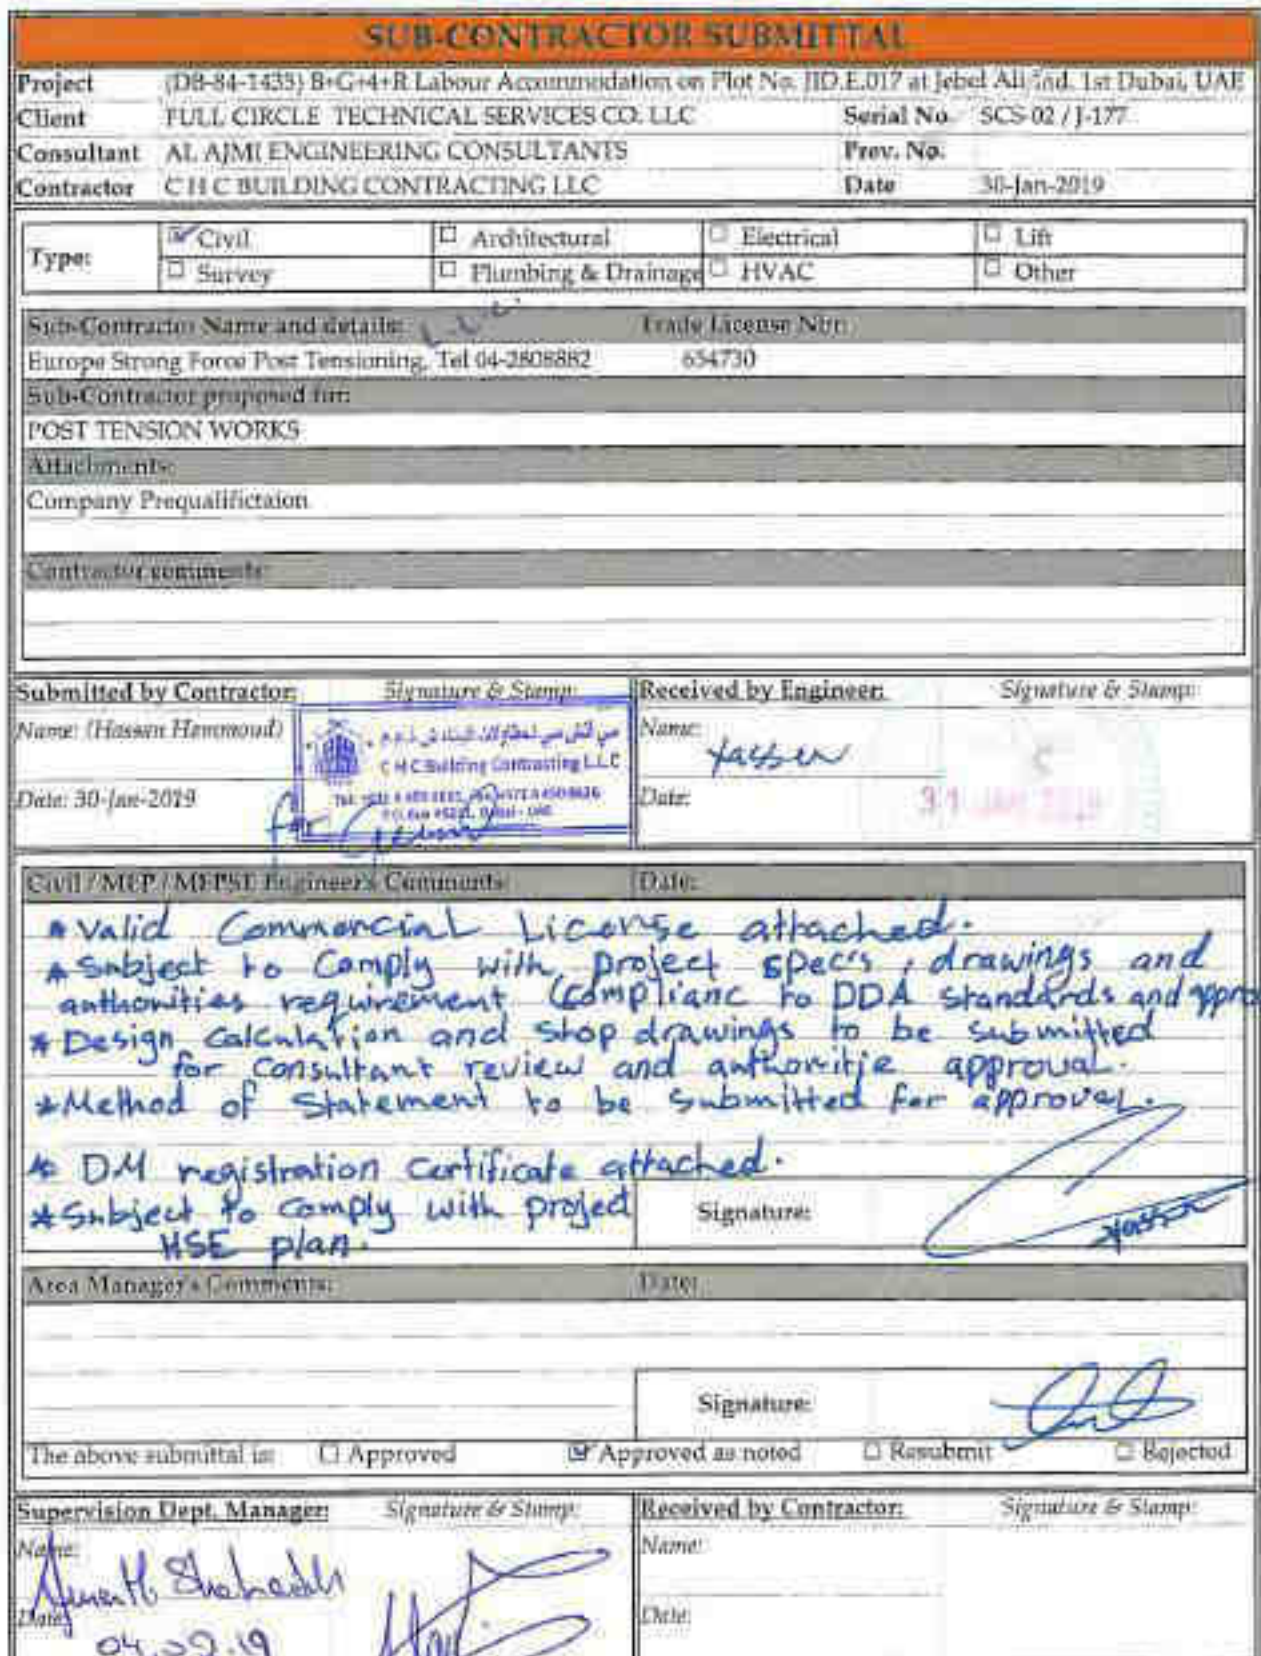 SUB-CONTRACTOR SUBMITTAL
Project (DB-84-1435) B+G+4+R Labour Accommodation on Plot No. JID.E.017 at Jebel Ali Ind. 1st Dubai, UAE
Client FULL CIRCLE TECHNICAL SERVICES CO. LLC Serial No. SCS-02 / J-177
Consultant AL AJMI ENGINEERING CONSULTANTS Prev. No.
Contractor C H C BUILDING CONTRACTING LLC Date 30-Jan-2019
Type: Civil Architectural Electrical Lift
Survey Plumbing & Drainage HVAC Other
Sub-Contractor Name and details: Trade License Nbr:
L.L.C.
Europe Strong Force Post Tensioning, Tel 04-2808882 654730
Sub-Contractor proposed for:
POST TENSION WORKS
Attachments:
Company Prequalifictaion
Contractor comments:
Submitted by Contractor: Signature & Stamp: Received by Engineer: Signature & Stamp:
Name: (Hassan Hammoud) Name: Yasser
C H C Building Contracting L.L.C
Date: 30-Jan-2019 Date: 31 JAN 2019
for
Civil / MEP / MEPSE Engineer's Comments: Date:
* Valid Commercial License attached.
* Subject to Comply with project spec's, drawings and
authorities requirement (Complianc to DDA standards and
* Design Calculation and shop drawings to be submitted
for Consultant review and authoritie approval.
* Method of Statement to be submitted for approval.
* DM registration Certificate attached.
* Subject to comply with project
HSE plan.
Signature: Yasser
Area Manager's Comments: Date:
Signature:
The above submittal is: Approved Approved as noted Resubmit Rejected
Supervision Dept. Manager: Signature & Stamp: Received by Contractor: Signature & Stamp:
Name: Name:
Date: Date: